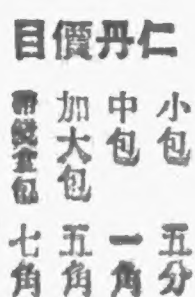 仁丹價目
小包 五分
中包 一角
加大包 五角
七角